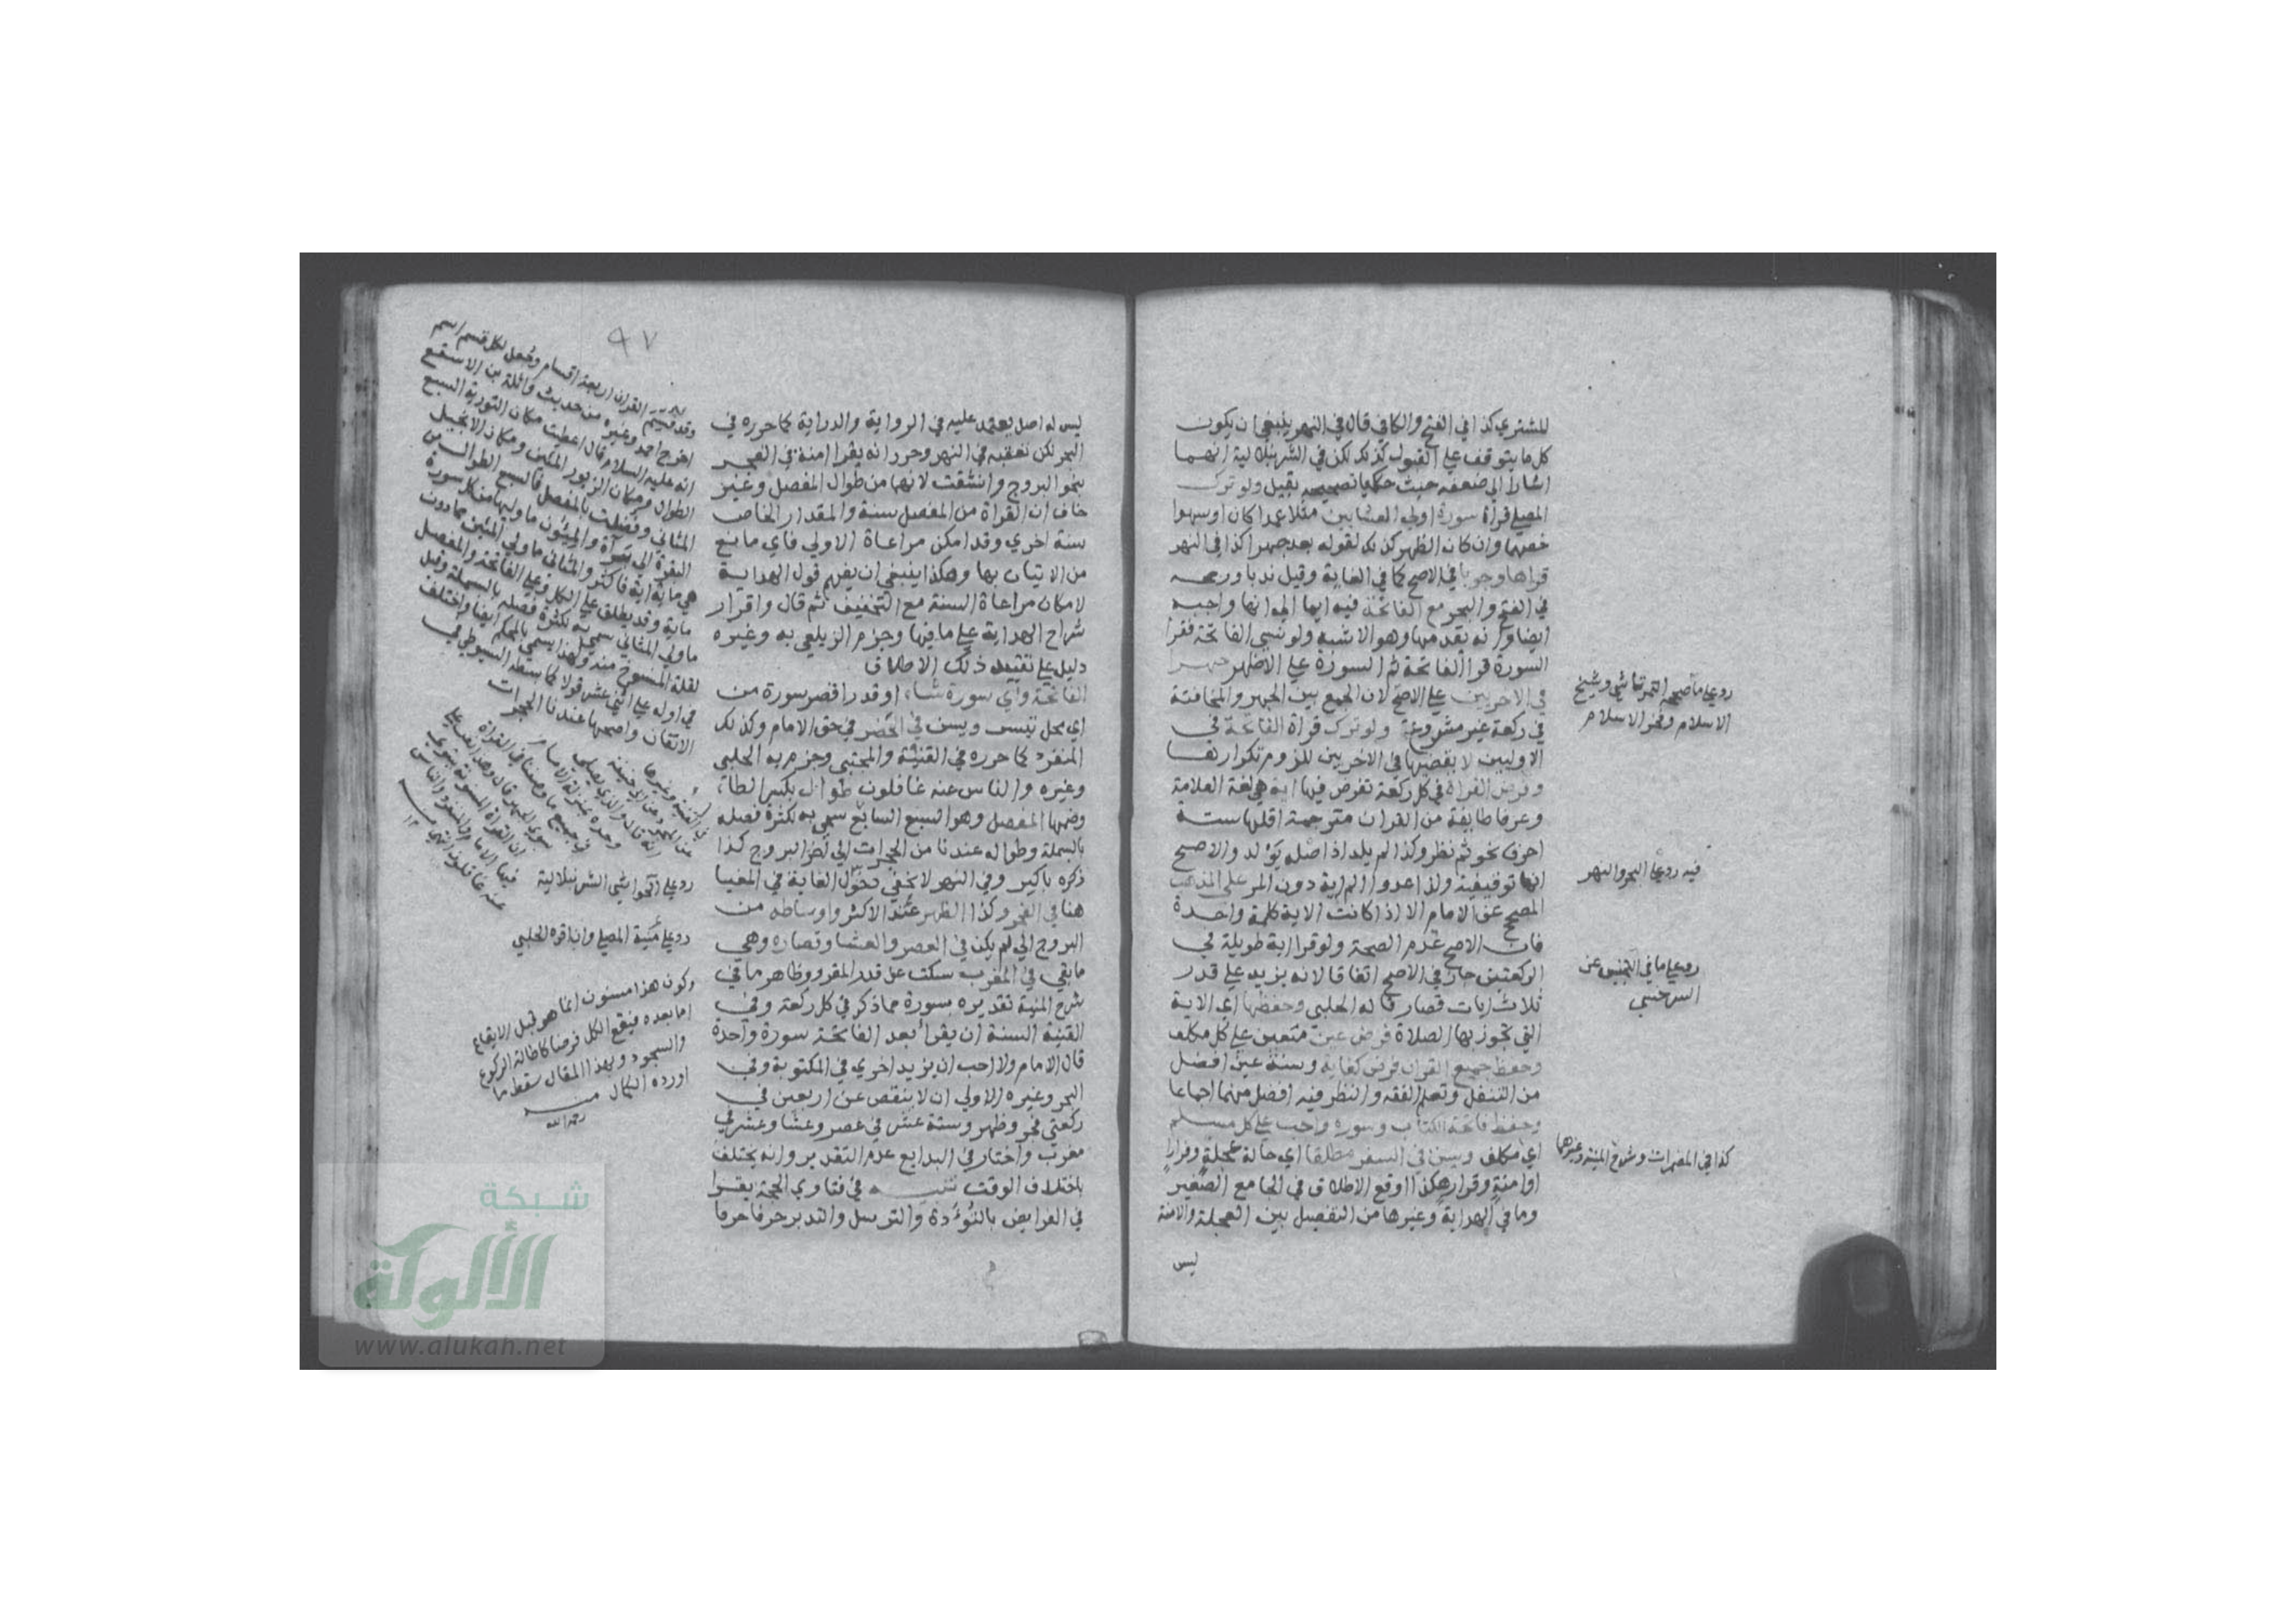 للمشتري كذا في الفتح والكافي قال في النهر ينبغي ان يكون
كل ما يتوقف على القبول كذلك لكن في الشرنبلالية انهما
اشارا الى ضعفه حيث حكيا تصحيحه بقيل ولو ترك
المصلي قراة سورة اولي العشا مثلا عمدا كان او سهوا
خصها وان كان الظهر كذلك لقوله بعد جهرا كذا في النهر
قراها وجوبا في الاصح كما في الغاية وقيل ندبا ورجحه
في الفتح والبحر مع الفاتحة فيه ايما الى انها واجبة
ايضا وانه يقدمها وهو الاشبه ولو نسي الفاتحة فقرا
السورة قرا الفاتحة ثم السورة على الاظهر جهرا
في الاخريين على الاصح لان الجمع بين الجهر والمخافتة
في ركعة غير مشروعة ولو ترك قراة الفاتحة في
الاوليين لا يقضيها في الاخريين للزوم تكرارها
وفرض القراة في كل ركعة تفرض فيها اية هي لغة العلامة
وعرفا طايفة من القران مترجمة اقلها ستة
احرف نحو ثم نظر وكذا لم يلد اذ اصله يولد والاصح
انها توقيفية ولذا عدوا الم اية دون المر على المذهب
المصحح عن الامام الا اذا كانت الاية كلمة واحدة
فان الاصح عدم الصحة ولو قرا اية طويلة في
الركعتين جاز في الاصح اتفاقا لانه يزيد على قدر
ثلاث ايات قصار قاله الحلبي وحفظها اي الاية
التي تجوز بها الصلاة فرض عين متعين على كل مكلف
وحفظ جميع القران فرض كفاية وسنة عين افضل
من التنفل وتعلم الفقه والنظر فيه افضل منهما اجماعا
وحفظ فاتحة الكتاب وسورة واجب على كل مسلم
اي مكلف ويسن في السفر مطلقا اي حالة عجلة وفرارا
او امنة وقرار هكذا وقع الاطلاق في الجامع الصغير
وما في الهداية وغيرها من التفصيل بين العجلة والامنة
ليس
رد على ما صححه التمرتاشي وشيخ
الاسلام وفخر الاسلام
فيه رد على البحر والنهر
رد على ما في التجنيس عن
السرخسي
كذا في المضمرات وشروح المنية وغيرها
٩٧
ليس له اصل يعتمد عليه في الرواية والدراية كما حرره في
البحر لكن تعقبه في النهر وحرر انه يقرا امنة في الفجر
بنحو البروج وانشقت لانهما من طوال المفصل وغير
خاف ان القراة من المفصل سنة والمقدار الخاص
سنة اخرى وقد امكن مراعاة الاولى فاي مانع
من الاتيان بها وهكذا ينبغي ان يفهم قول الهداية
لامكان مراعاة السنة مع التخفيف ثم قال واقرار
شراح الهداية على ما فيها وجزم الزيلعي به وغيره
دليل على تقييد ذلك الاطلاق
الفاتحة واي سورة شاء او قدر اقصر سورة من
اي محل تيسر ويسن في الحضر في حق الامام وكذلك
المنفرد كما حرره في القنية والمجتبى وجزم به الحلبي
وغيره والناس عنه غافلون طوال بكسر الطاء
وضمها المفصل وهو السبع السابع سمي به لكثرة فصله
بالبسملة وطواله عندنا من الحجرات الى البروج كذا
ذكره باكير وفي النهر لا يخفى دخول الغاية في المغيا
هنا في الفجر وكذا الظهر عند الاكثر واوساطه من
البروج الى لم يكن في العصر والعشا وقصاره وهي
ما بقي في المغرب سكت عن قدر المقرو وظاهر ما في
شرح المنية تقديره بسورة مما ذكر في كل ركعة وفي
القنية السنة ان يقرأ بعد الفاتحة سورة واحدة
قال الامام ولا احب ان يزيد اخرى في المكتوبة وفي
البحر وغيره الاولى ان لا ينقص عن اربعين في
ركعتي فجر وظهر وستة عشر في عصر وعشا وعشر في
مغرب واختار في البدايع عدم التقدير وانه يختلف
باختلاف الوقت تنبيه في فتاوي الحجة يقرا
في الفرايض بالتؤدة والترسل والتدبر حرفا حرفا
وقد قسم القران اربعة اقسام وجعل لكل قسم اسم
اخرج احمد وغيره من حديث واثلة بن الاسقع
انه عليه السلام قال اعطيت مكان التورية السبع
الطوال ومكان الزبور المئين ومكان الانجيل
المثاني وفضلت بالمفصل فالسبع الطوال من
البقرة الى براة والمئون ما وليها من كل سورة
هي ماية اية فاكثر والمثاني ما ولي المئين مما دون
ماية وقد يطلق على الكل وعلى الفاتحة والمفصل
ما ولي المثاني سمي به لكثرة فصله بالبسملة وقيل
لقلة المنسوخ منه ولهذا يسمى بالمحكم ايضا واختلف
في اوله على اثني عشر قولا كما بسطه السيوطي في
الاتقان واصحها عندنا الحجرات
رد على محشي الشرنبلالية
رد على منية المصلي وان اقره الحلبي
وكون هذا مسنون انما هو قبل الايقاع
اما بعده فيقع الكل فرضا كاطالة الركوع
والسجود وبهذا المقال سقط ما
اورده الكمال
رحمه الله
شبكة
الألوكة
www.alukah.net